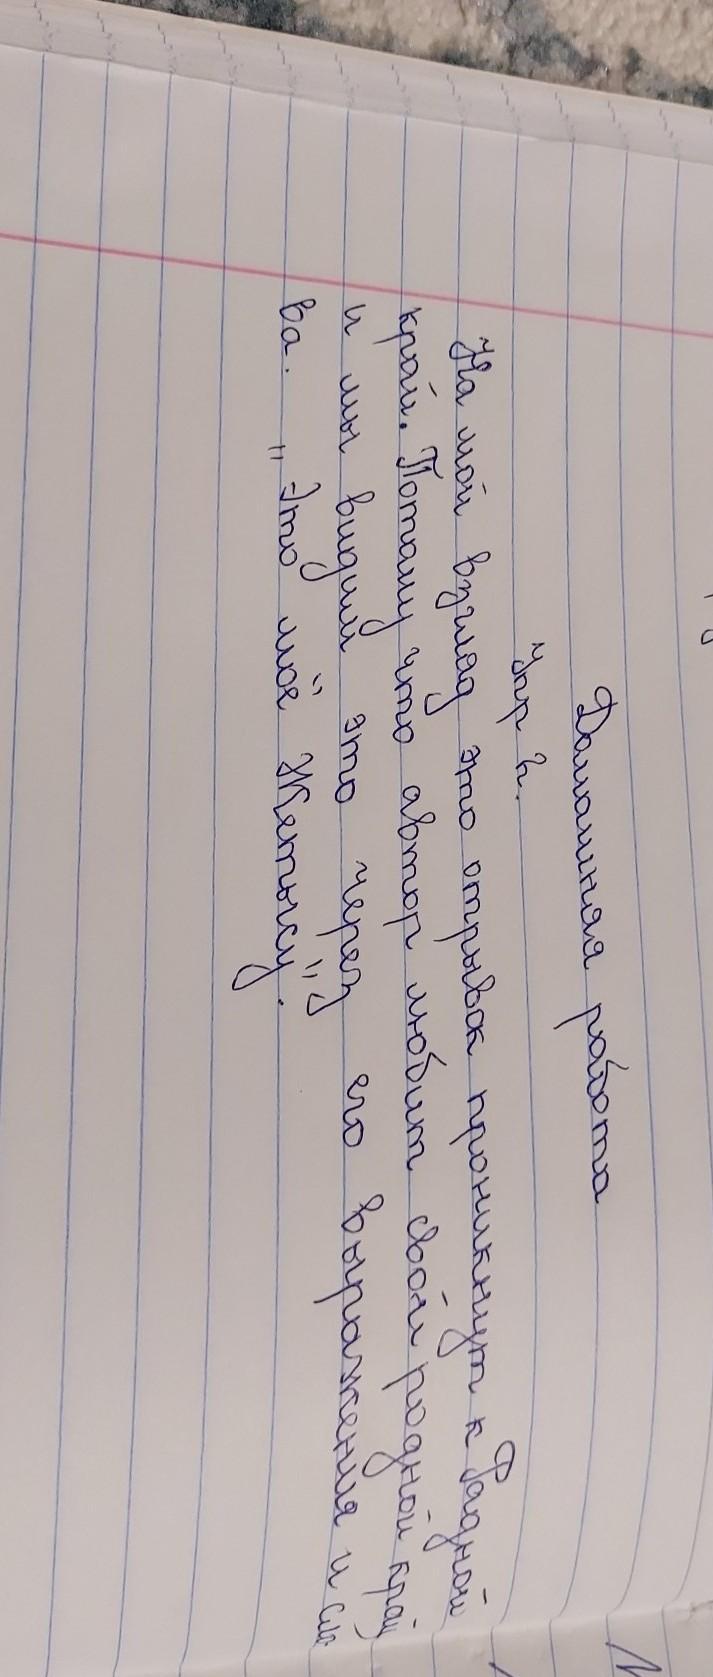 Домашняя работа
Упр 2.
На мой взгляд это отрывок проникнут к Родной
край. Потому что автор любит свой родной край
и мы видим это через его выражения и сло
ва. „Это моё Жетысу".